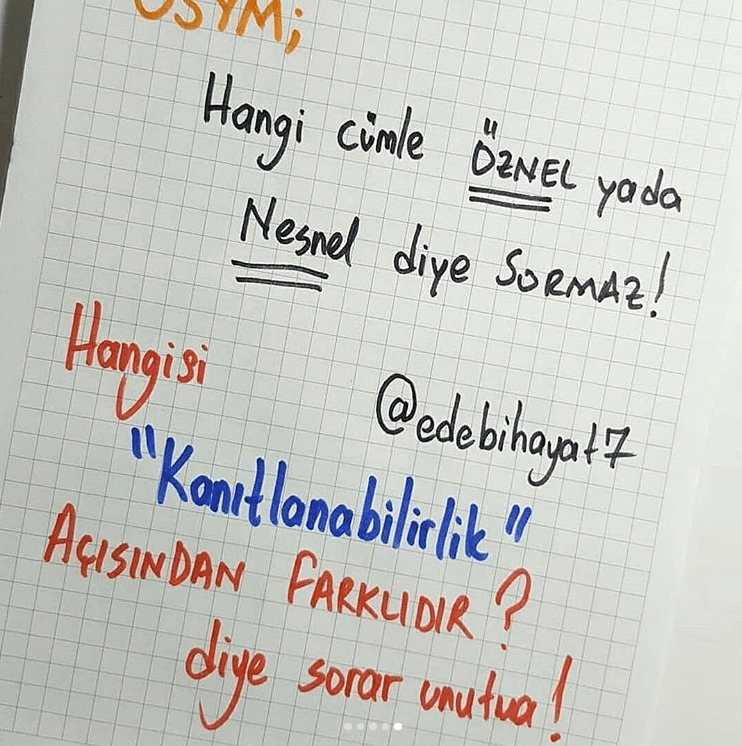 ÖSYM;
Hangi cümle ÖZNEL yada
Nesnel diye SORMAZ!
Hangisi
@edebihayat7
"Kanıtlanabilirlik"
AÇISINDAN FARKLIDIR?
diye sorar unutma!